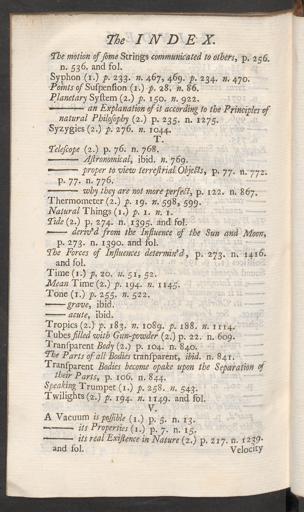 The INDEX.
The motion of some Strings communicated to others, p. 256.
n. 536. and fol.
Syphon (1.) p. 233. n. 467, 469. p. 234. n. 470.
Points of Suspension (1.) p. 28. n. 86.
Planetary System (2.) p. 150. n. 922.
—— an Explanation of it according to the Principles of
natural Philosophy (2.) p. 235. n. 1275.
Syzygies (2.) p. 276. n. 1044.
T.
Telescope (2.) p. 76. n. 768.
—— Astronomical, ibid. n. 769.
—— proper to view terrestrial Objects, p. 77. n. 772.
p. 77. n. 776.
—— why they are not more perfect, p. 122. n. 867.
Thermometer (2.) p. 19. n. 598, 599.
Natural Things (1.) p. 1. n. 1.
Tide (2.) p. 274. n. 1395. and fol.
—— deriv'd from the Influence of the Sun and Moon,
p. 273. n. 1390. and fol.
The Forces of Influences determin'd, p. 273. n. 1416.
and fol.
Time (1.) p. 20. n. 51, 52.
Mean Time (2.) p. 194. n. 1145.
Tone (1.) p. 255. n. 522.
—— grave, ibid.
—— acute, ibid.
Tropics (2.) p. 183. n. 1089. p. 188. n. 1114.
Tubes filled with Gun-powder (2.) p. 22. n. 609.
Transparent Body (2.) p. 104. n. 840.
The Parts of all Bodies transparent, ibid. n. 841.
Transparent Bodies become opake upon the Separation of
their Parts, p. 106. n. 844.
Speaking Trumpet (1.) p. 258. n. 543.
Twilights (2.) p. 194. n. 1149. and fol.
V.
A Vacuum is possible (1.) p. 5. n. 13.
—— its Properties (1.) p. 7. n. 15.
—— its real Existence in Nature (2.) p. 217. n. 1239.
and fol. Velocity